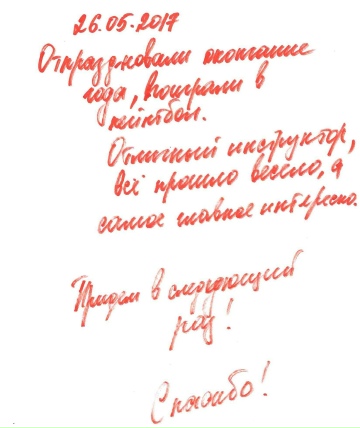 26.05.2017
Отпраздновали окончание
года, поиграли в
пейнтбол.
Отличный инструктор,
всё прошло весело, а
самое главное интересно.
Придем в следующий
раз!
Спасибо!